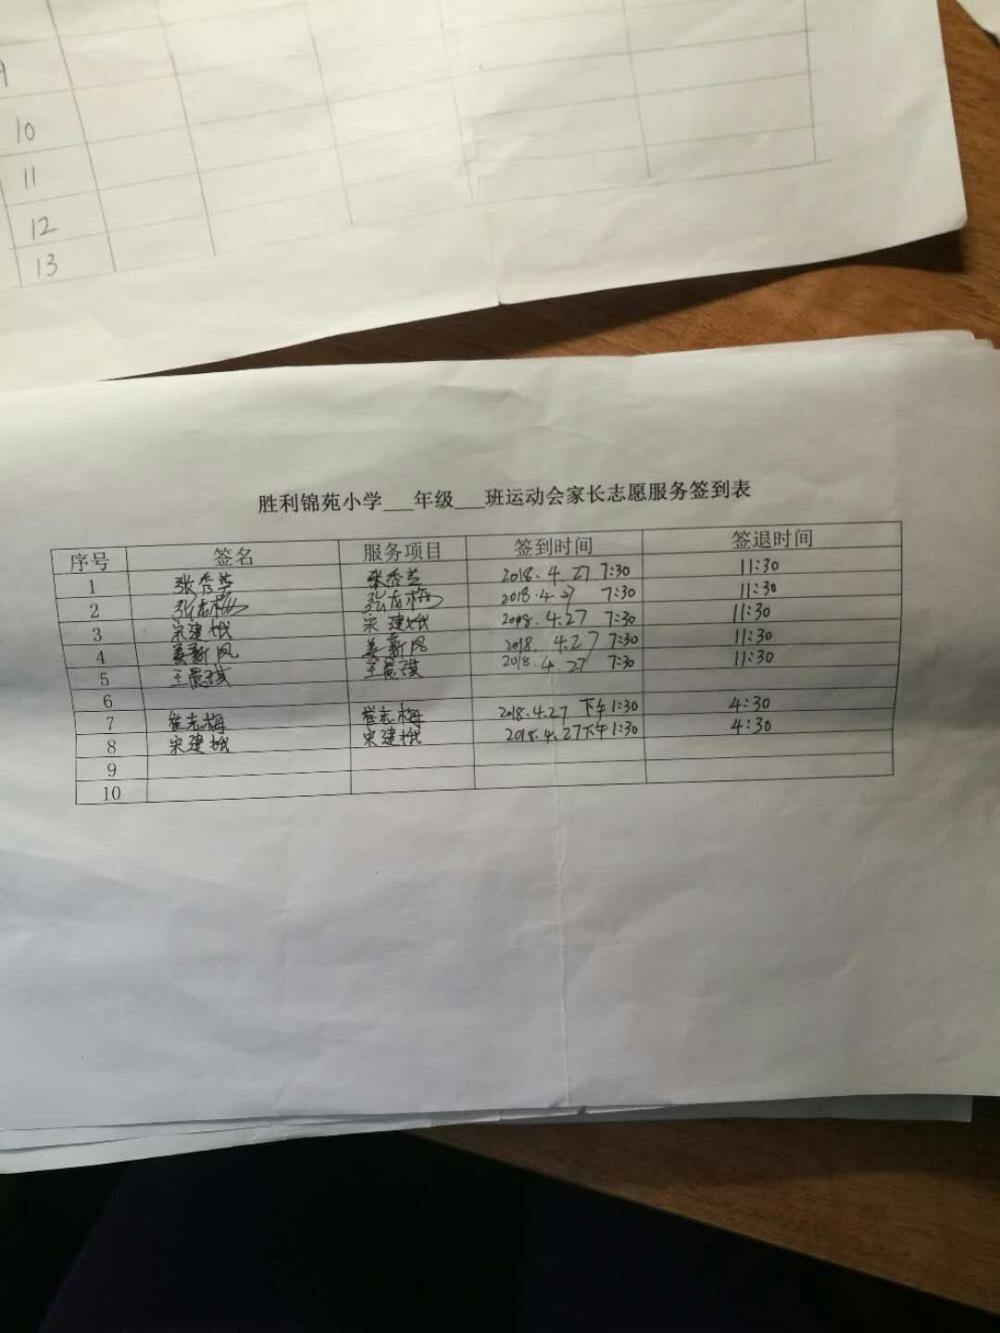 9
10
11
12
13
胜利锦苑小学___年级___班运动会家长志愿服务签到表
序号 签名 服务项目 签到时间 签退时间
1 张秀芝 张秀芝 2018.4.27 7:30 11:30
2 张志梅 张志梅 2018.4.27 7:30 11:30
3 宋建娥 宋建娥 2018.4.27 7:30 11:30
4 姜新凤 姜新凤 2018.4.27 7:30 11:30
5 王晨琪 王晨琪 2018.4.27 7:30 11:30
6
7 崔志梅 崔志梅 2018.4.27 下午1:30 4:30
8 宋建娥 宋建娥 2018.4.27下午1:30 4:30
9
10